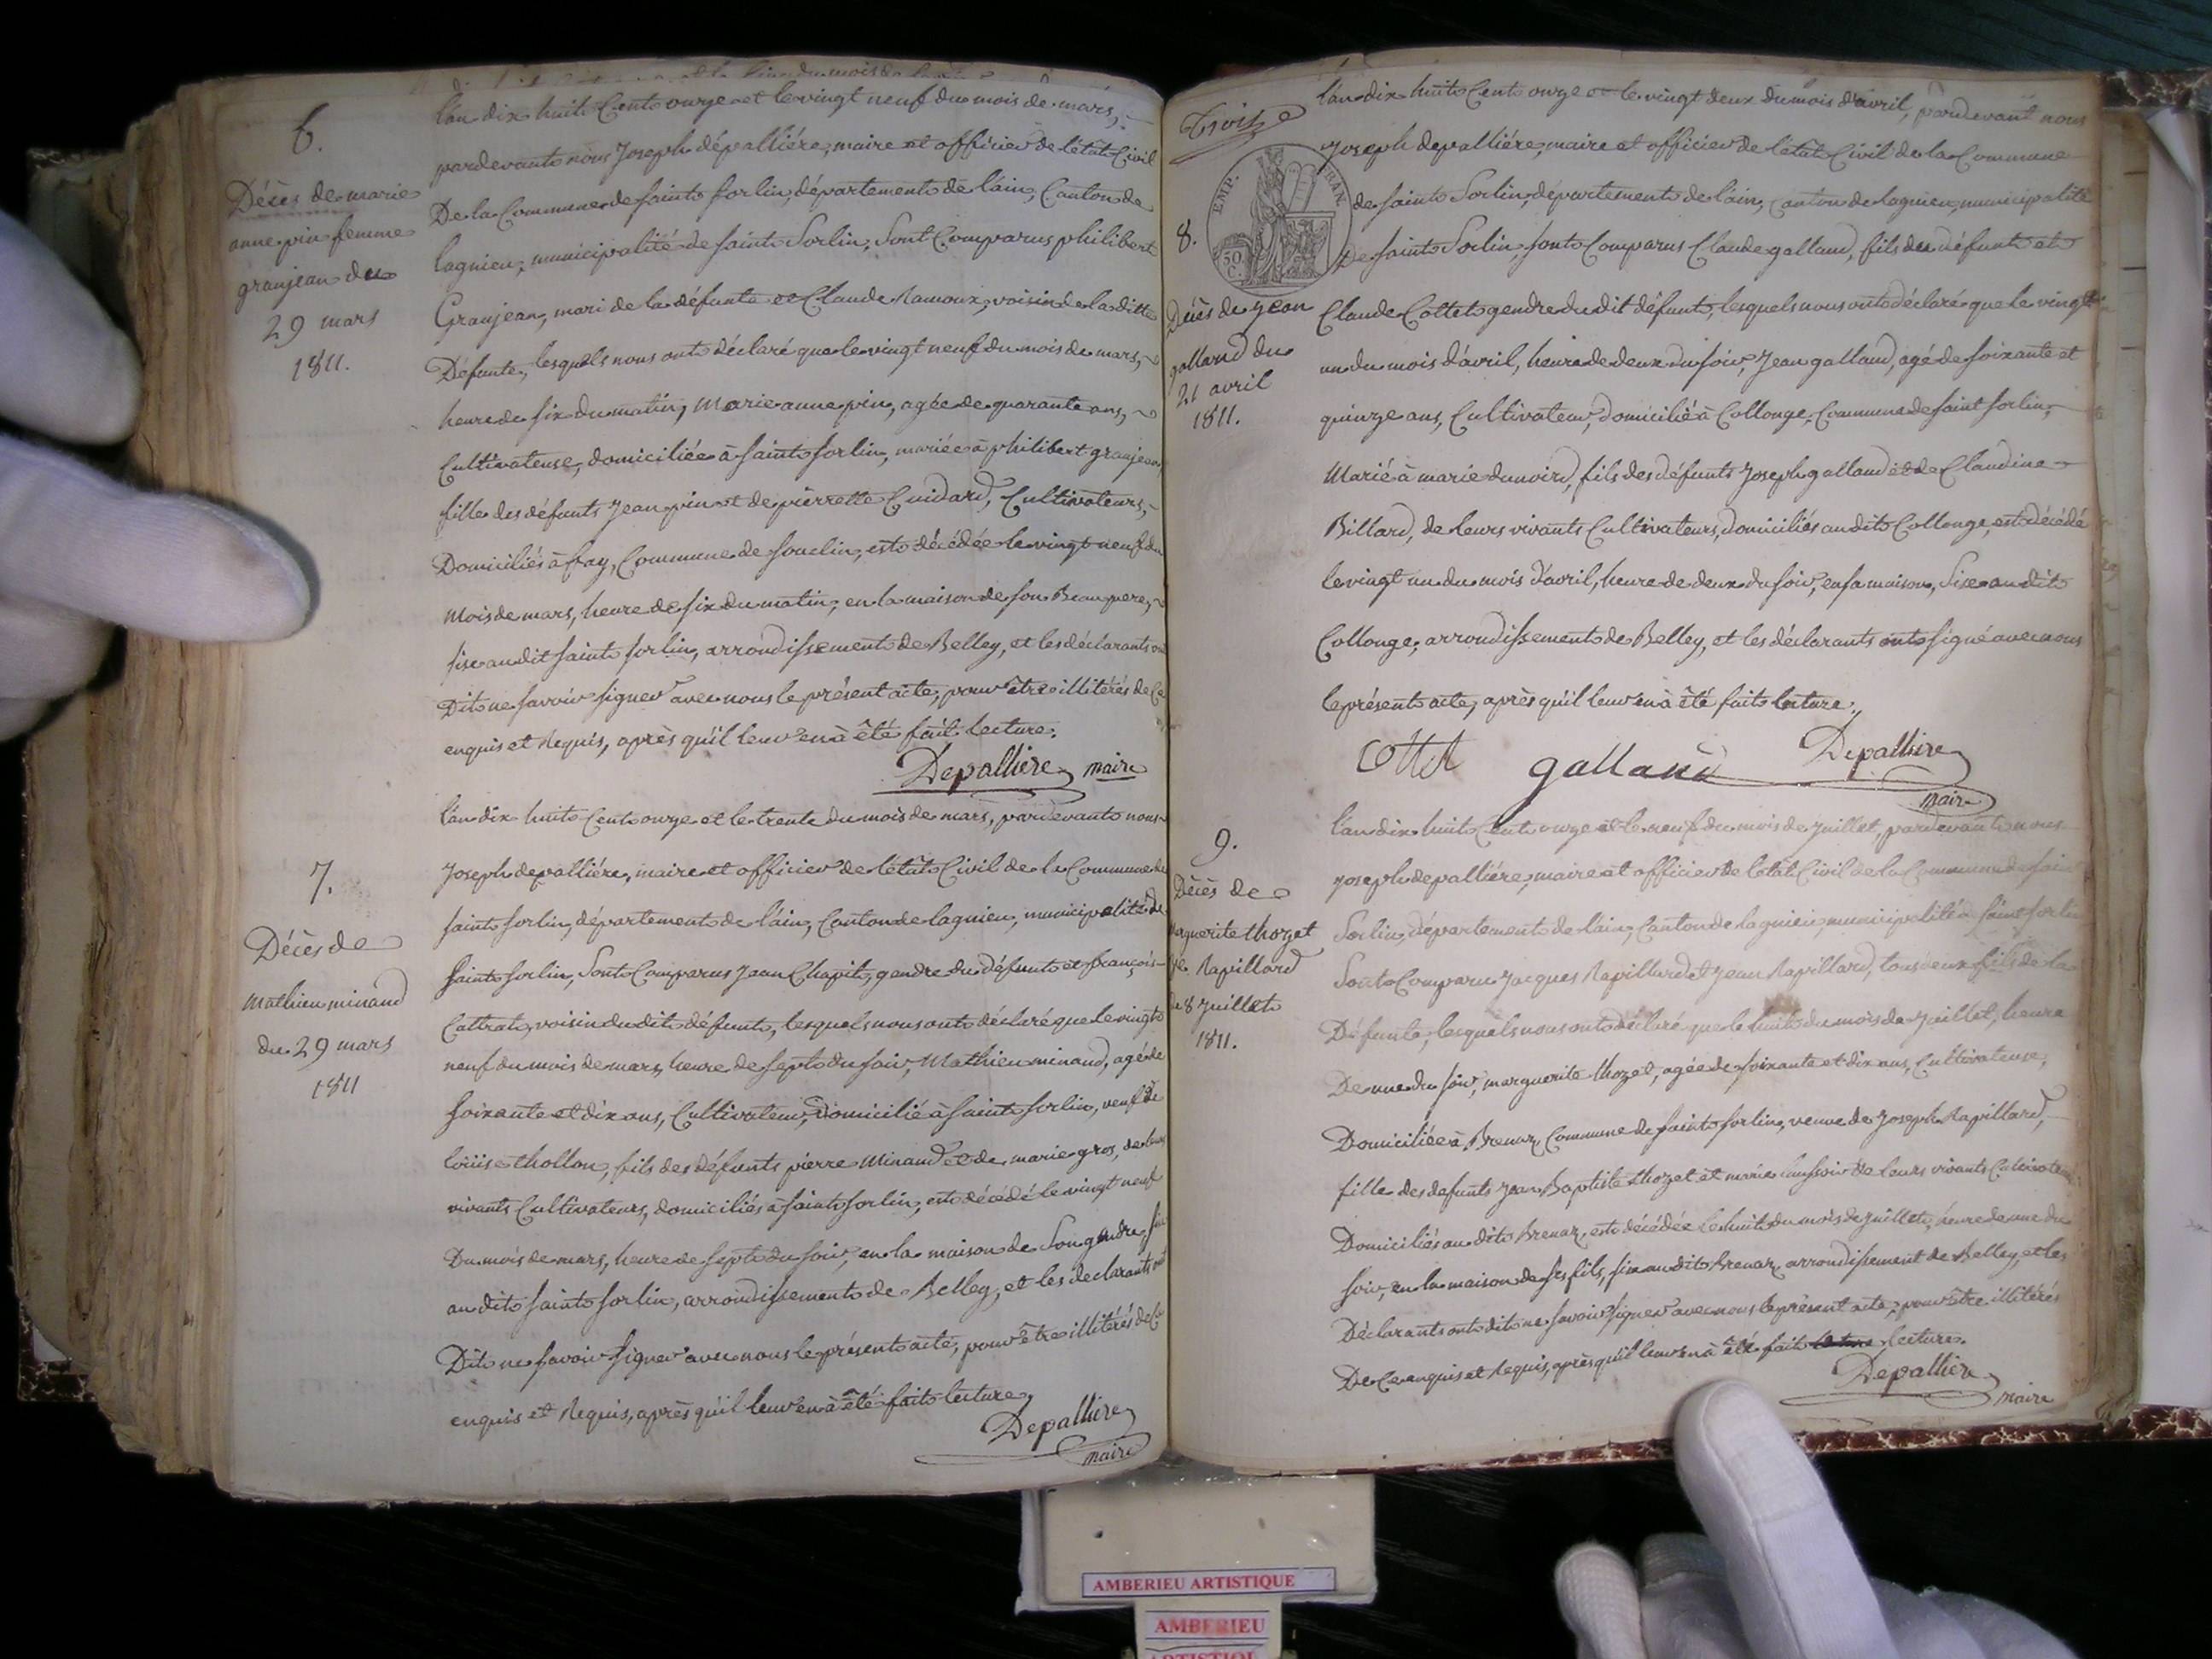 6.
Décès de marie
anne pin femme
granjean du
29 mars
1811.
l'an dix huit Cent onze et le vingt neuf du mois de mars,
pardevant nous Joseph dépalliére, maire et officier de l'état Civil
De la Commune de saint sorlin, département de l'ain, Canton de
lagnieu, municipalité de saint Sorlin, Sont Comparus philibert
Granjean, mari de la défunte et Claude Ramoux, voisin de la ditte
Défunte, lesquels nous ont déclaré que le vingt neuf du mois de mars,
heure de six du matin, Marie anne pin, agée de quarante ans,
Cultivateuse, domiciliée à saint sorlin, mariée à philibert granjean,
fille des défunts Jean pin et de pierrette Guidard, Cultivateurs,
Domiciliés à fay, Commune de souclin, est décédée le vingt neuf du
mois de mars, heure de six du matin, en la maison de son Beau pere,
sise au dit saint sorlin, arrondissement de Belley, et les déclarants ont
Dit ne savoir signer avec nous le présent acte, pour être illitérés de Ce
enquis et Requis, après qu'il leur en à été fait lecture.
Depalliere maire
7.
Décès de
mathieu minand
du 29 mars
1811
l'an dix huit Cent onze et le trente du mois de mars, pardevant nous
Joseph depalliére, maire et officier de l'état Civil de la Commune de
saint sorlin, département de l'ain, Canton de lagnieu, municipalité de
saint sorlin, Sont Comparus Jean Chapit, gendre du défunt et françois
Cattrat, voisin du dit défunt, lesquels nous ont déclaré que le vingt
neuf du mois de mars, heure de sept du soir, Mathieu minand, agé de
soixante et dix ans, Cultivateur, Domicilié à saint sorlin, veuf de
loüise thollon, fils des défunts pierre Minand et de marie gros, de leurs
vivants Cultivateurs, domiciliés à saint sorlin, est décédé le vingt neuf
Du mois de mars, heure de sept du soir, en la maison de Son gendre, sise
au dit saint sorlin, arrondissement de Belley, et les declarants ont
Dit ne savoir signer avec nous le présent acte, pour être illitérés de Ce
enquis et Requis, après qu'il leur en à été fait lecture,
Depalliere
maire
Trois
EMP. FRAN.
50 C.
8.
Décès de Jean
galland du
21 avril
1811.
l'an dix huit Cent onze et le vingt deux du mois d'avril, pardevant nous
Joseph depalliére, maire et officier de l'état Civil de la Commune
de saint Sorlin, département de l'ain, Canton de lagnieu, municipalité
De saint Sorlin, sont Comparus Claude galland, fils du défunt et
Claude Cottet gendre du dit défunt, lesquels nous ont déclaré que le vingt
un du mois d'avril, heure de deux du soir, Jean galland, agé de soixante et
quinze ans, Cultivateur, domicilié à Collonge, Commune de saint sorlin,
Marié à marie dunoird, fils des défunts Joseph galland et de Claudine
Billard, de leurs vivants Cultivateurs, domiciliés au dit Collonge, est décédé
le vingt un du mois d'avril, heure de deux du soir, en sa maison, Sise au dit
Collonge, arrondissement de Belley, et les déclarants ont signé avec nous
le présent acte, après qu'il leur en à été fait lecture.
Cottet galland Depalliere
maire
9.
Décès de
marguerite thozet
ve Rapillard
du 8 Juillet
1811.
l'an dix huit Cent onze et le neuf du mois de Juillet, pardevant nous
Joseph depalliére, maire et officier de l'état Civil de la Commune de saint
Sorlin, département de l'ain, Canton de lagnieu, municipalité de saint sorlin
Sont Comparu Jacques Rapillard et Jean Rapillard, tous deux fils de la
Défunte, lesquels nous ont déclaré que le huit du mois de Juillet, heure
De une du soir, marguerite thozet, agée de soixante et dix ans, Cultivateuse,
Domiciliée à Brenaz, Commune de saint sorlin, veuve de Joseph Rapillard,
fille des defunts Jean Baptiste thozet et marie de leurs vivants Cultivateurs
Domiciliés au dit Brenaz, est décédée le huit du mois de juillet, heure de une du
soir, en la maison de ses fils, sise au dit Brenaz, arrondissement de Belley, et les
Déclarants ont dit ne savoir signer avec nous le présent acte, pour être illitérés
De Ce enquis et Requis, après qu'il leur en à été fait lecture.
Depalliere
maire
AMBERIEU ARTISTIQUE
AMBERIEU
ARTISTIQUE